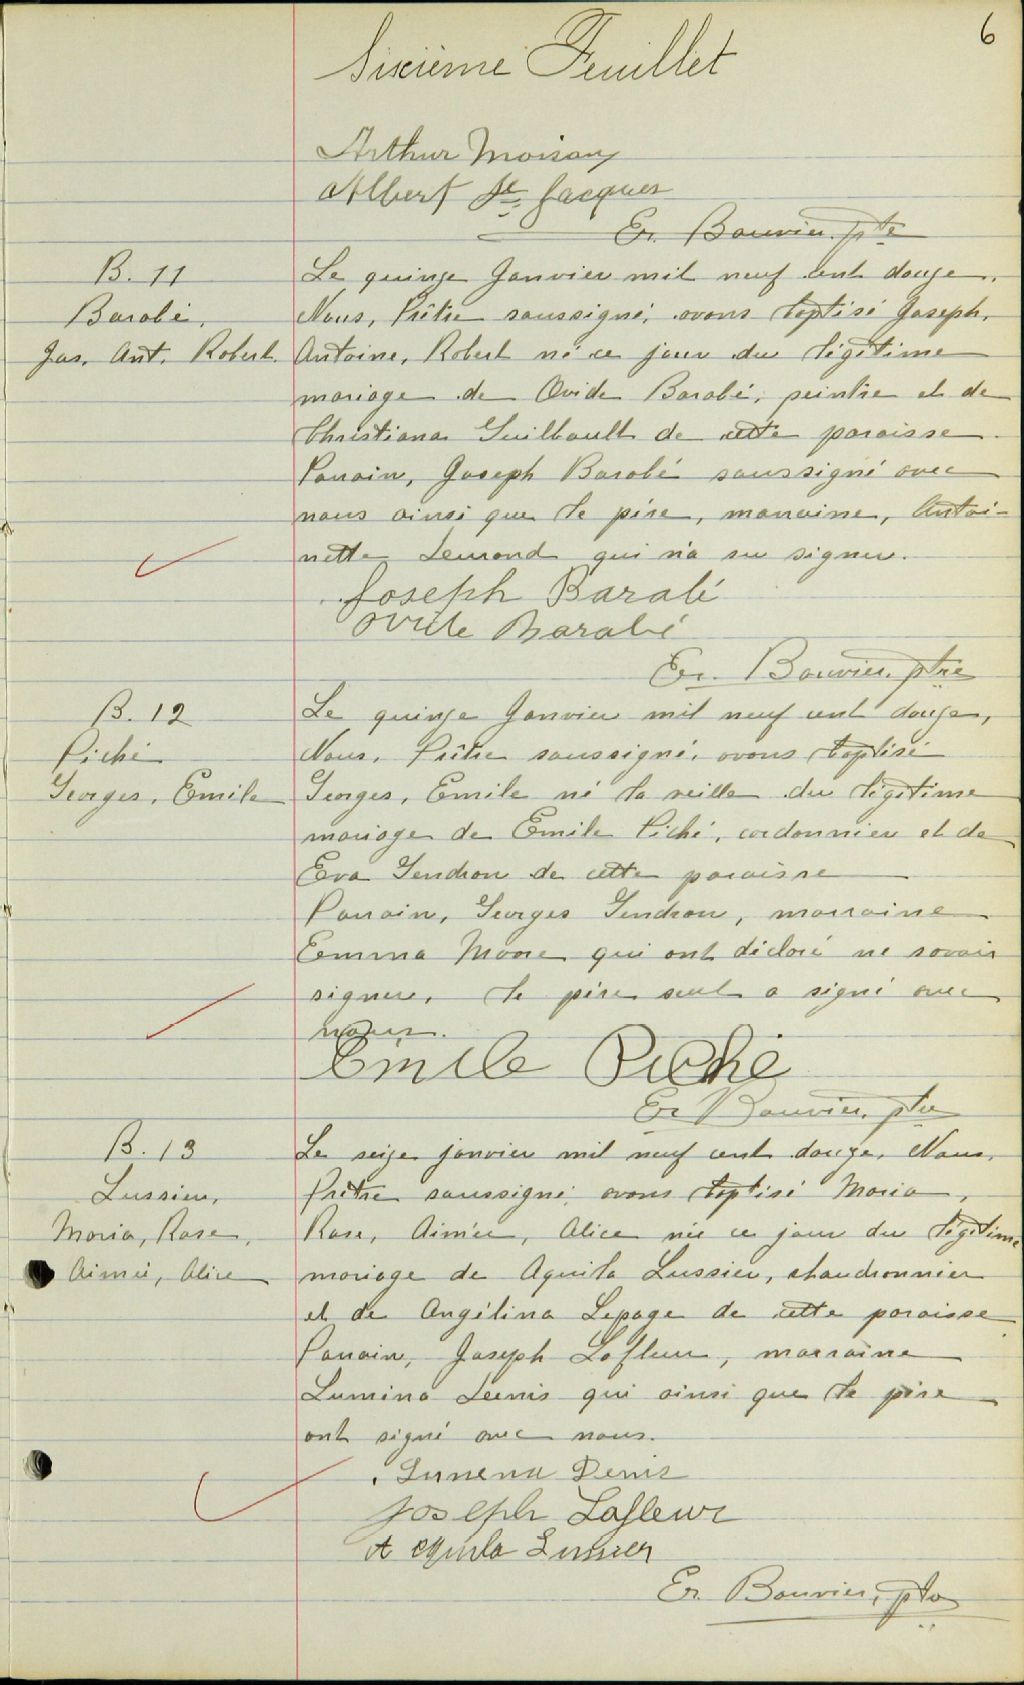 6
Sixième Feuillet
Arthur Moison
Albert St Jacques
Er. Bouvier, ptre
B. 11
Barabé,
Jos. Ant. Robert.
Le quinze Janvier mil neuf cent douze,
Nous, Prêtre soussigné, avons baptisé Joseph,
Antoine, Robert né ce jour du légitime
mariage de Ovide Barabé, peintre et de
Christiana Guilbault de cette paroisse.
Parrain, Joseph Barabé soussigné avec
nous ainsi que le père, marraine, Antoi-
nette Lemond qui n'a su signer.
Joseph Barabé
Ovide Barabé
Er. Bouvier, ptre
B. 12
Piché
Georges, Emile
Le quinze Janvier mil neuf cent douze,
Nous, Prêtre soussigné, avons baptisé
Georges, Emile né la veille du légitime
mariage de Emile Piché, cordonnier et de
Eva Gendron de cette paroisse
Parrain, Georges Gendron, marraine
Emma Moore qui ont déclaré ne savoir
signer, le père seul a signé avec
nous.
Emile Piché
Er Bouvier, ptre
B. 13
Lussier,
Maria, Rose,
Aimée, Alice
Le seize janvier mil neuf cent douze, Nous,
Prêtre soussigné, avons baptisé Maria,
Rose, Aimée, Alice née ce jour du légitime
mariage de Aquila Lussier, chaudronnier
et de Angélina Lepage de cette paroisse
Parrain, Joseph Lafleur, marraine
Lumina Denis qui ainsi que le père
ont signé avec nous.
Lumena Denis
Joseph Lafleur
Aquila Lussier
Er. Bouvier, ptre